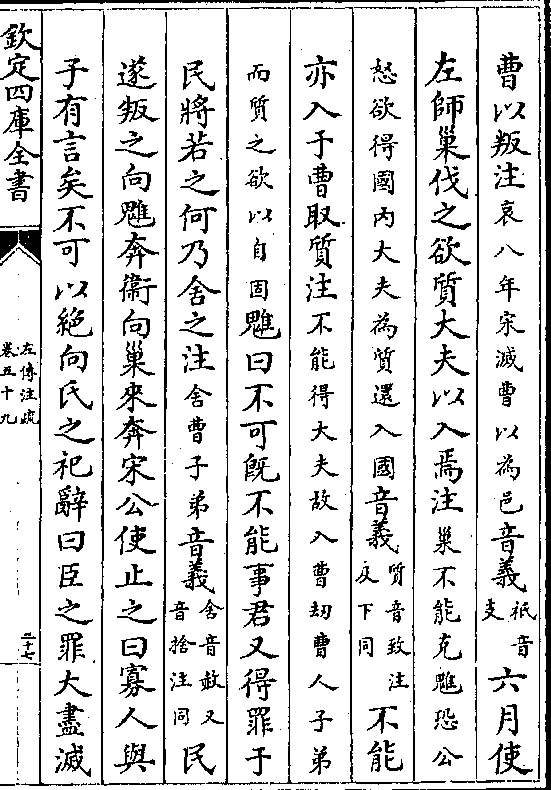 曹以叛注哀八年宋滅曹以為邑音義祇音支六月使
左師巢伐之欲質大夫以入焉注巢不能克魋恐公
怒欲得國內大夫為質還入國音義質音致注反下同不能
亦入于曹取質注不能得大夫故入曹劫曹人子弟
而質之欲以自固魋曰不可既不能事君又得罪于
民將若之何乃舍之注舍曹子弟音義舍音赦又音捨注同民
遂叛之向魋奔衛向巢來奔宋公使止之曰寡人與
子有言矣不可以絕向氏之祀辭曰臣之罪大盡滅
欽定四庫全書
左傳注疏
卷五十九
二十七